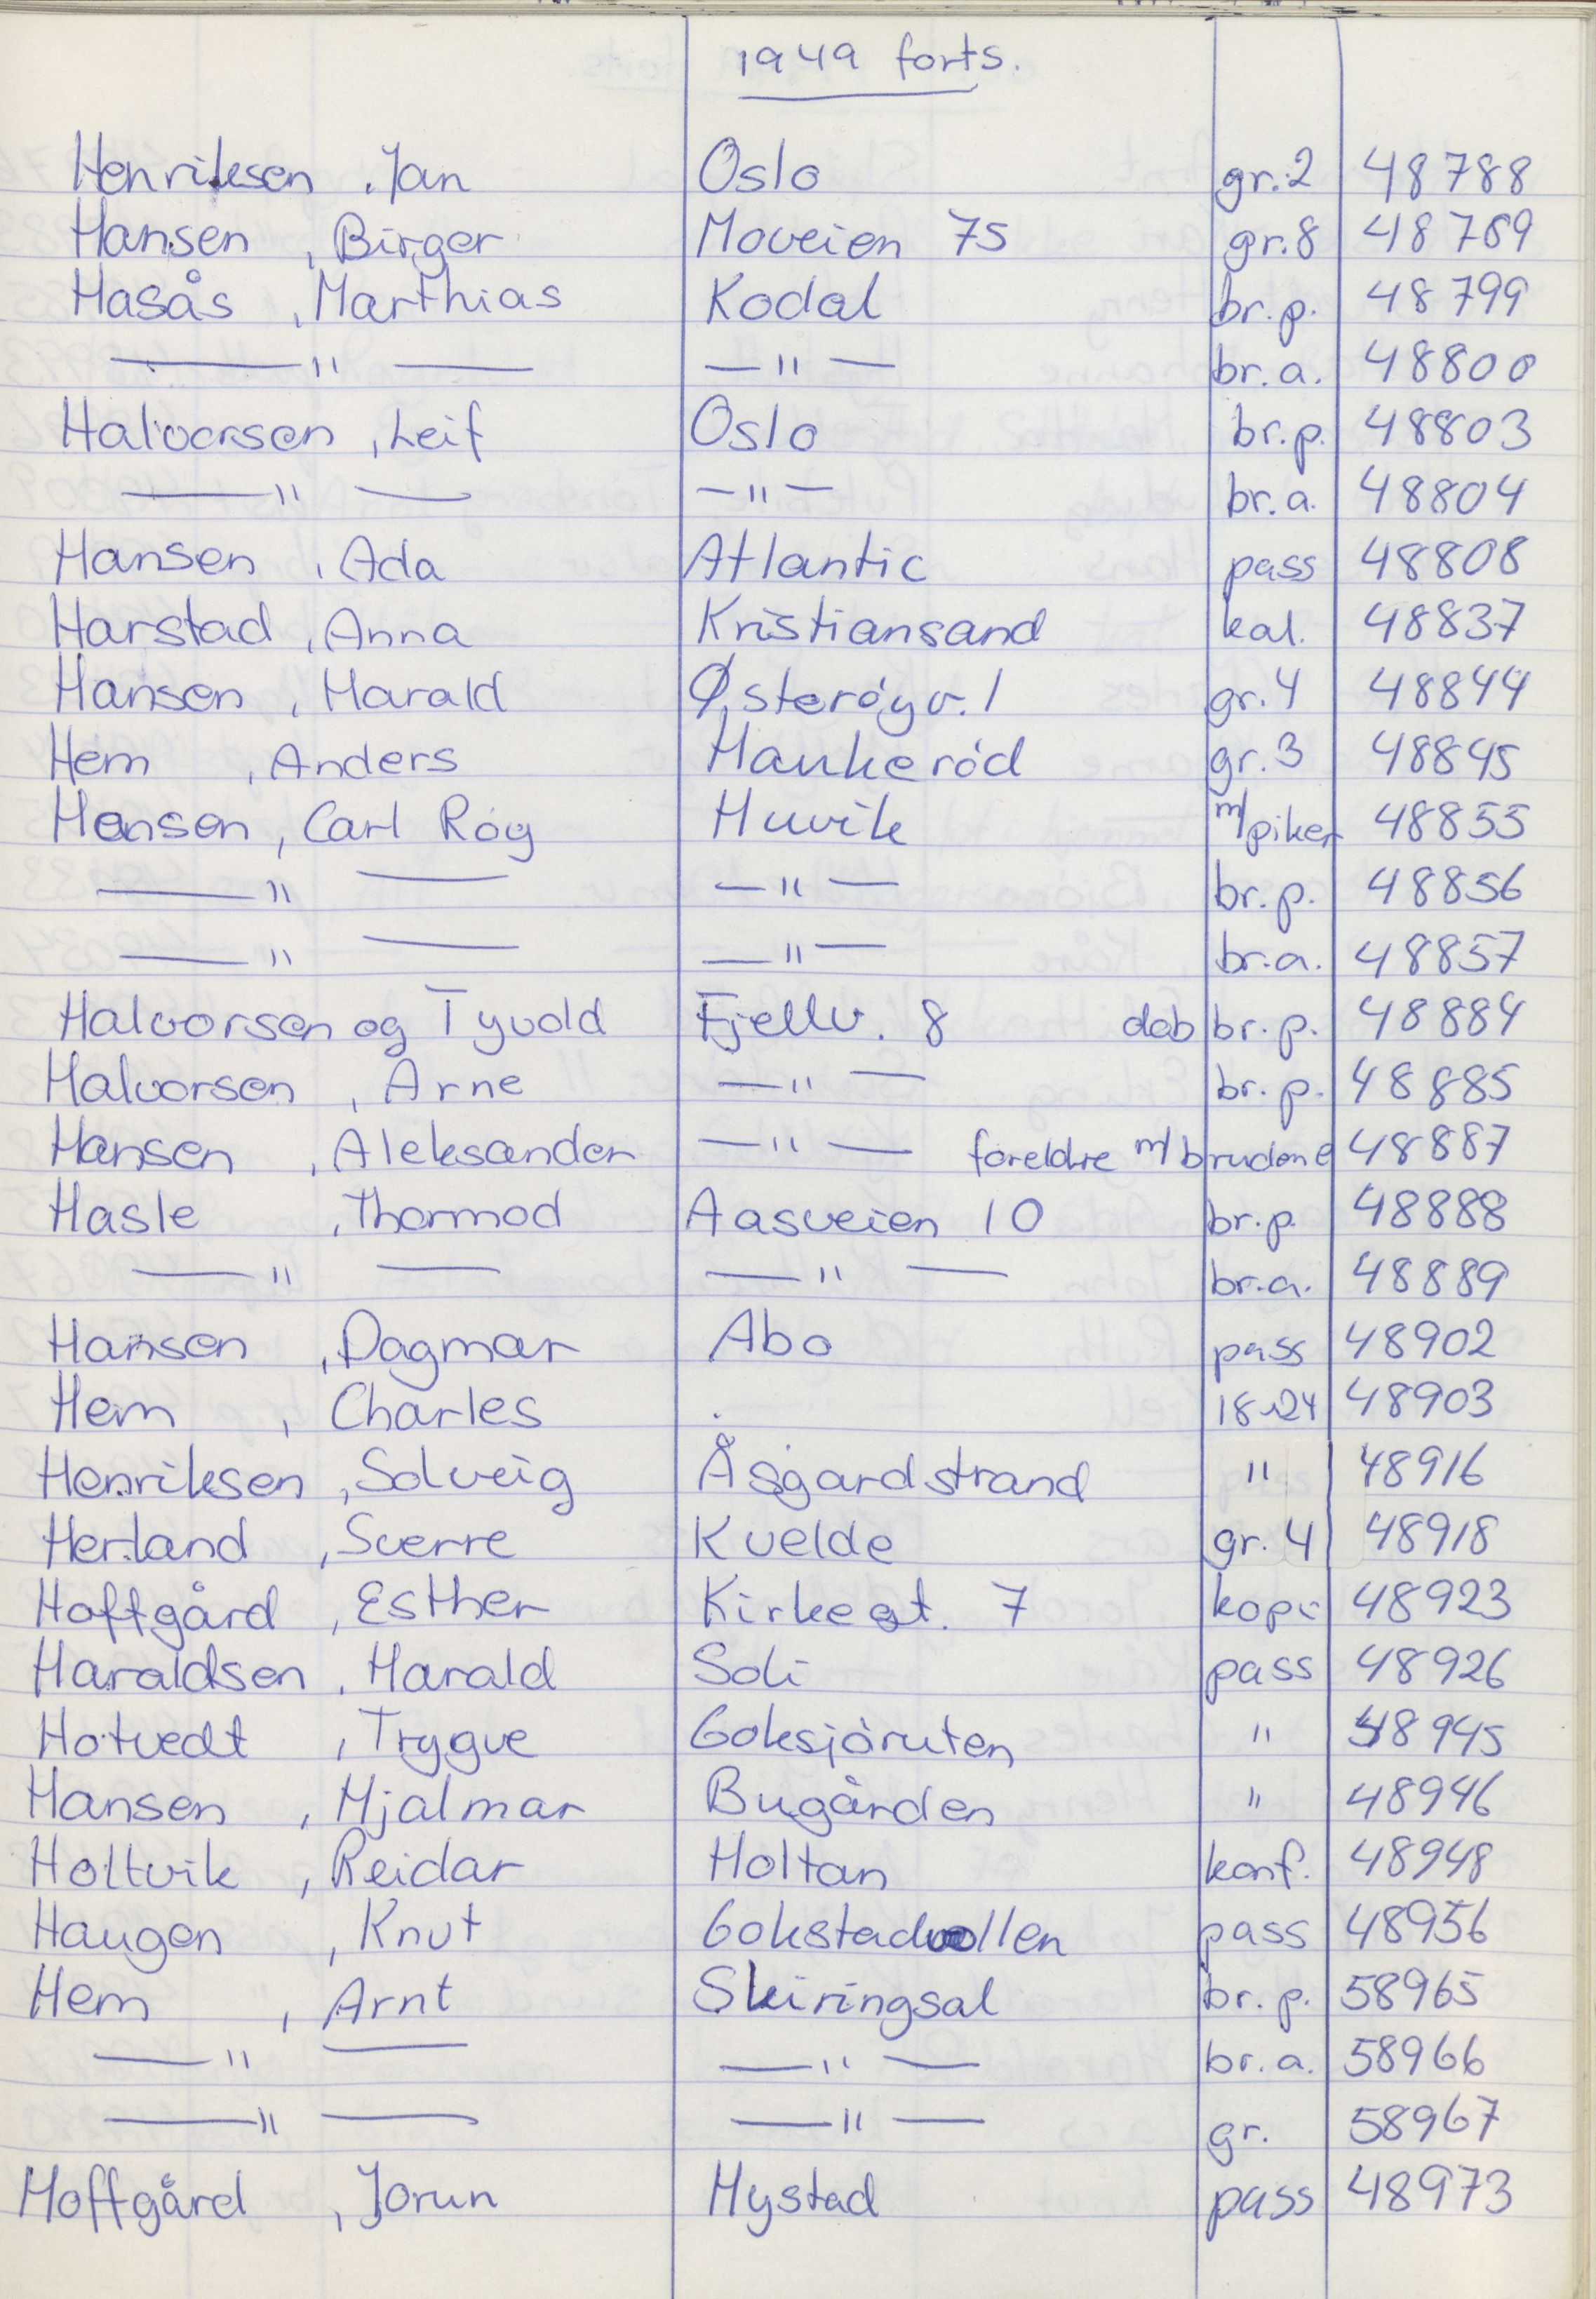 1949 forts.
Henriksen , Jan Oslo gr. 2 48788
Hansen , Birger Moveien 75 gr. 8 48789
Hasås , Marthias Kodal br. p. 48799
— " — — " — br. a. 48800
Halvorsen , Leif Oslo br. p. 48803
— " — — " — br. a. 48804
Hansen , Ada Atlantic pass 48808
Harstad , Anna Kristiansand kal. 48837
Hansen , Harald Østerøyv. 1 gr. 4 48844
Hem , Anders Haukerød gr. 3 48845
Hansen , Carl Røy Huvik m/piker 48855
— " — — " — br. p. 48856
— " — — " — br. a. 48857
Halvorsen og Tyvold Fjellv. 8 dob br. p. 48884
Halvorsen , Arne — " — br. p. 48885
Hansen , Aleksander — " — foreldre m/brudene 48887
Hasle , Thormod Aasveien 10 br. p. 48888
— " — — " — br. a. 48889
Hansen , Dagmar Abo pass 48902
Hem , Charles 18x24 48903
Henriksen , Solveig Åsgardstrand " 48916
Herland , Sverre Kvelde gr. 4 48918
Hoffgård , Esther Kirkegt. 7 kopi 48923
Haraldsen , Harald Soli pass 48926
Hotvedt , Trygve Goksjøruten " 48945
Hansen , Hjalmar Bugården " 48946
Holtvik , Reidar Holtan konf. 48948
Haugen , Knut Gokstadvollen pass 48956
Hem , Arnt Skiringsal br. p. 58965
— " — — " — br. a. 58966
— " — — " — gr. 58967
Hoffgård , Jorun Hystad pass 48973